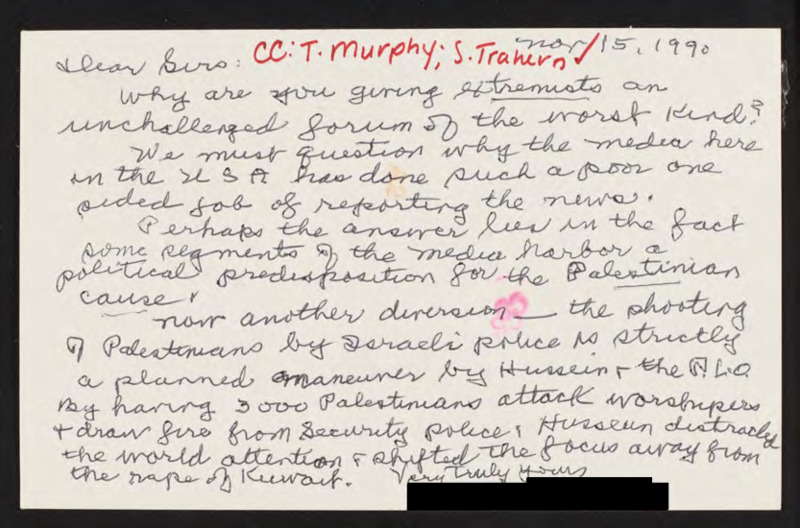 CC: T. Murphy; S. Trahern
Nov 15, 1990
Dear Sirs:
Why are you giving extremists an
unchallenged forum of the worst kind?
We must question why the media here
in the U S A has done such a poor one
sided job of reporting the news.
Perhaps the answer lies in the fact
some segments of the media harbor a
political predisposition for the Palestinian
cause.
Now another diversion — the shooting
of Palestinians by Israeli police is strictly
a planned maneuver by Hussein + the P.L.O.
By having 3000 Palestinians attack worshipers
+ draw fire from Security police, Hussein distracted
the world attention + shifted the focus away from
the rape of Kuwait. Very Truly Yours